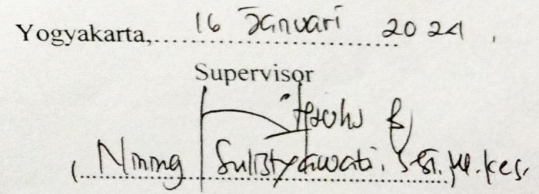 Yogyakarta, 16 Januari 2024.
Supervisor
(Nining Sulistyawati, S.Si., M.Kes.